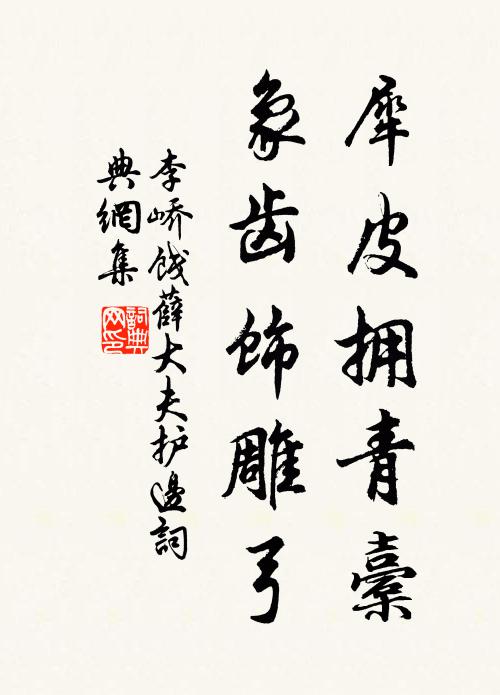 犀皮拥青橐
象齿饰雕弓
李峤饯薛大夫护邊詞
典網集
詞典网印